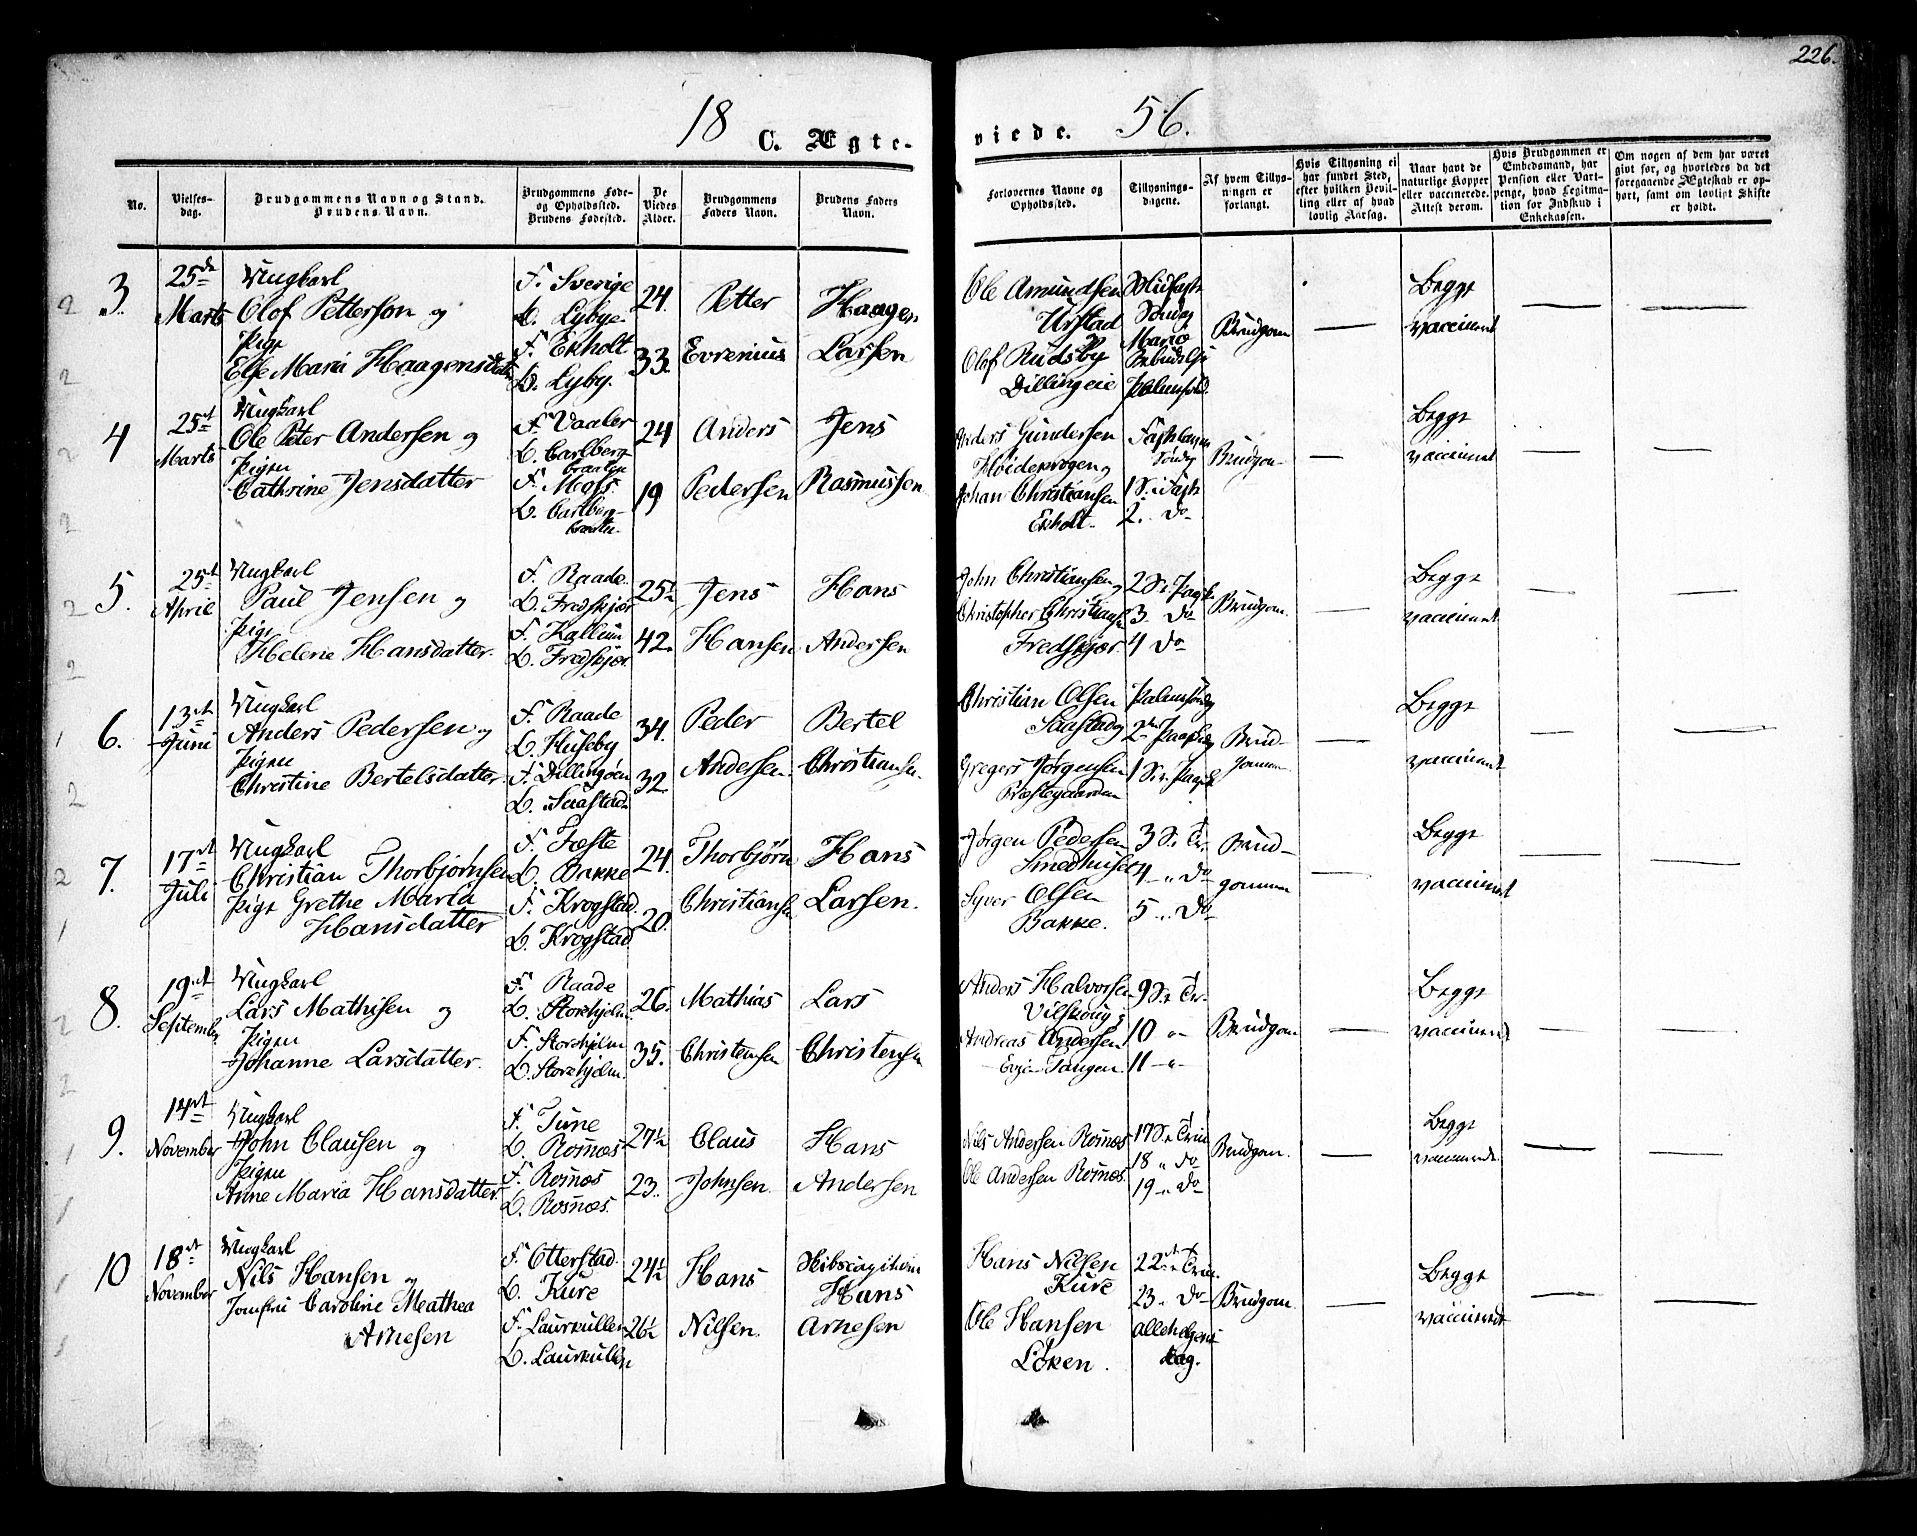 226.
18 C. Ægte-
viede. 56.
No.
Vielses-
dag.
Brudgommens Navn og Stand.
Brudens Navn.
Brudgommens Føde-
og Opholdssted.
Brudens Fødested.
De
Viedes
Alder.
Brudgommens
Faders Navn.
Brudens Faders
Navn.
Forlovernes Navne og
Opholdssted.
Tillysnings-
dagene.
Af hvem Tillys-
ningen er
forlangt.
Hvis Tillysning ei
har fundet Sted,
efter hvilken Bevil-
ling eller af hvad
lovlig Aarsag.
Naar havt de
naturlige Kopper
eller vaccinerede.
Attest derom.
Hvis Brudgommen er
Embedsmand, har
Pension eller Vart-
penge, hvad Legitima-
tion for Indskud i
Enkekassen.
Om nogen af dem har været
gift før, og hvorledes da det
foregaaende Ægteskab er op-
hørt, samt om lovligt Skifte
er holdt.
3.
25de
Marts
Ungkarl
Olof Petterson og
Pige
Else Maria Haagensdatter
F. Sverige
O. Lybye
F. Ekholt
O. Lyby.
24.
33.
Petter
Evrenius
Haagen
Larsen
Ole Amundsen
Urstad
Olof Rudsby
Dillingeie
Midfaste
Søndag
Mariæ
Bebudelse
Palmesønd.
Brudgom
Begge
vaccineret
4
25de
Marts
Ungkarl
Ole Peter Andersen og
Pigen
Cathrine Jensdatter
F. Vaaler
O. Carlberg-
braaten
F. Moss.
O. Carlberg-
braaten.
24
19
Anders
Pedersen
Jens
Rasmussen
Anders Gundersen
Høidekrogen og
Johan Christiansen
Ekholt.
Fastelavns
Søndag
1 S. i Faste
2. Do
Brudgom
Begge
vaccineret
5.
25de
April
Ungkarl
Paul Jensen og
Pige
Helene Hansdatter.
F. Raade.
O. Fredskjør
F. Kallum
O. Fredskjør.
25½
42.
Jens
Hansen
Hans
Andersen
John Christiansen og
Christopher Christiansen
Fredskjør.
2 S. e. Paaske
3. Do
4 Do
Brudgom.
Begge
vaccineret
6.
13de
Juni
Ungkarl
Anders Pedersen og
Pigen
Christine Bertelsdatter
F. Raade
O. Huseby
F. Dillingøen
O. Saastad
34.
32.
Peder
Andersen.
Bertel
Christiansen.
Christian Olsen
Saastad og
Gregers Jørgensen
Præstegaarden
Palmesøndag
2den Paaskedag
1 S. e. Paaske
Brud-
gommen
Begge
vaccineret
7.
17de
Juli
Ungkarl
Christian Thorbjørnsen
Pige Grethe Maria
Hansdatter
F. Fæste
O. Bakke
F. Krogstad.
O. Krogstad
24.
20.
Thorbjørn
Christiansen
Hans
Larsen.
Jørgen Pedersen
Smedhuset
Syver Olsen
Bakke.
3 S. e. Tr.
4 - " Do
5 " Do
Brud-
gommen
Begge
vaccineret
8.
19de
September
Ungkarl
Lars Mathisen og
Pigen
Johanne Larsdatter.
F. Raade
O. Storehjolm
F. Storehjolm
O. Storehjolm.
26.
35.
Mathias
Christensen
Lars
Christensen
Anders Halvorsen
Vilskoug
Andreas Andersen
Tangen.
9 S. e. Tr.
10 "
11 "
Brudgom
Begge
vaccineret
9.
14de
November
Ungkarl
John Clausen og
Pigen
Anne Maria Hansdatter
F. Tune
O. Rosnæs
F. Rosnæs
O. Rosnæs.
27½
23.
Claus
Johnsen.
Hans
Andersen
Nils Andersen Rosnæs
Ole Andersen Rosnæs
17 S. e. Trin.
18 " Do
19 " Do
Brudgom.
Begge
vaccinerede.
10
18de
November
Ungkarl
Nils Hansen og
Jomfru Caroline Meathea
Arnesen
F. Otterstad.
O. Kure
F. Laurkullen
O. Laurkullen
24½
26½
Hans
Nilsen.
Skibscapitain
Hans
Arnesen
Hans Nilsen
Kure
Ole Hansen
Løken.
22 S. e. Trin.
23. Do
allehelgens
dag.
Brudgom
Begge
vaccineret